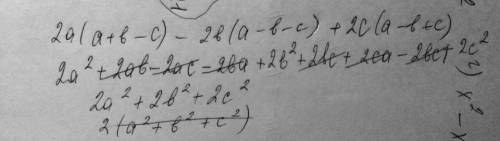 2a(a+b-c) - 2b(a-b-c) + 2c(a-b+c)
2a² + 2ab - 2ac - 2ba + 2b² + 2bc + 2ca - 2bc + 2c²
2a² + 2b² + 2c²
2(a² + b² + c²)